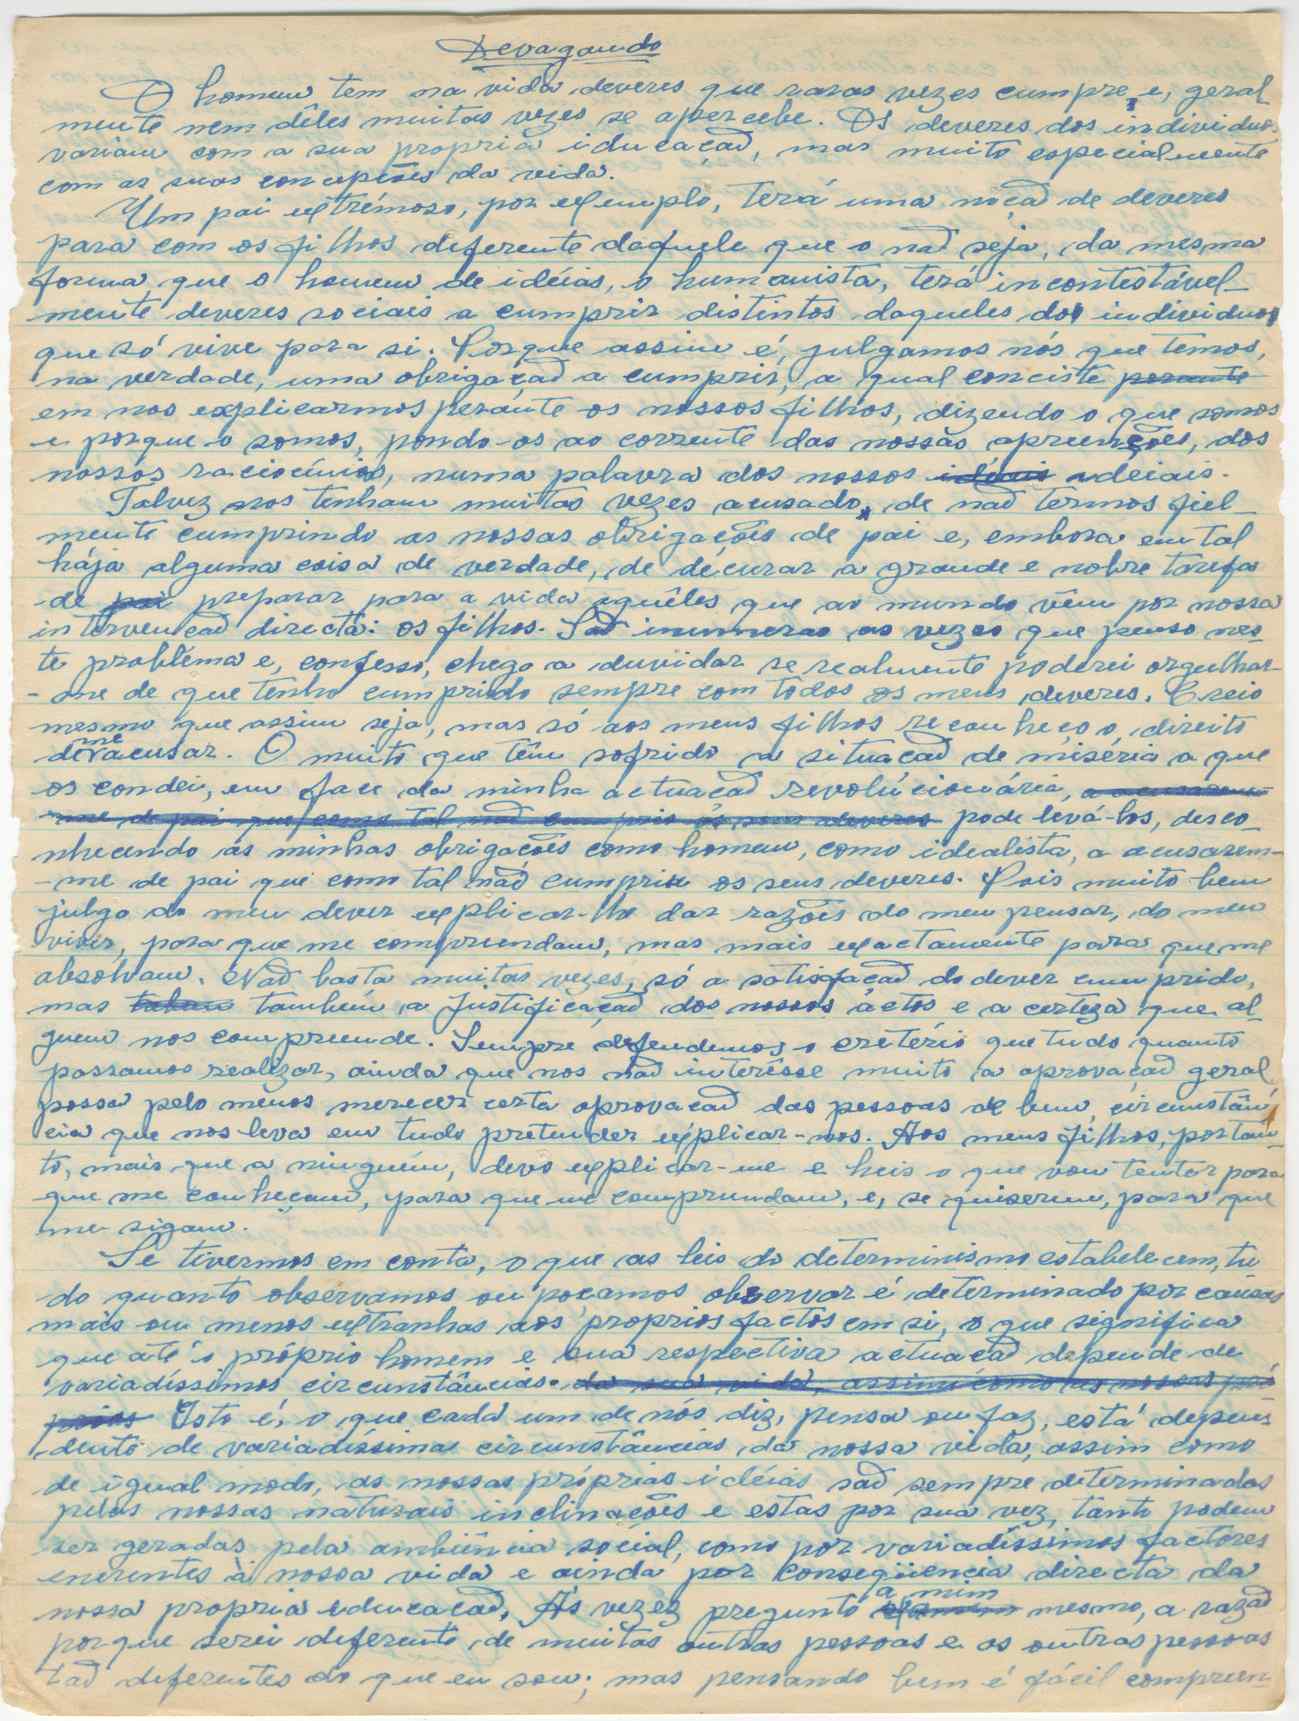 Devagando
O homem tem na vida deveres que raras vezes cumpre e, geral_
mente nem dêles muitas vezes se apercebe. Os deveres dos individuos
variam com a sua propria iducação, mas muito especialmente
com as suas concepções da vida.
Um pai extrémoso, por exemplo, terá uma noção de deveres
para com os filhos diferente daquele que o não seja, da mesma
forma que o homem de idéias, o humanista, terá incontestável_
mente deveres sociais a cumprir distintos daqueles do individuo
que só vive para si. Porque assim é, julgamos nós que temos,
na verdade, uma obrigação a cumprir, a qual conciste perante
em nos explicarmos perante os nossos filhos, dizendo o que somos
e porque o somos, pondo-os ao corrente das nossas apreenções, dos
nossos raciocínios, numa palavra dos nossos idéais ideiais.
Talvez nos tenham muitas vezes acusado, de não termos fiel_
mente cumprindo as nossas obrigações de pai e, embora em tal
hája alguma coisa de verdade, de décurar a grande e nobre taréfa
de pai preparar para a vida aquêles que ao mundo vêm por nossa
intervenção directa: os filhos. São inumeras as vezes que penso nes_
te probléma e, confesso, chego a duvidar se realmente poderei orgulhar-
-me de que tenho cumprido sempre com todos os meus deveres. Creio
mesmo que assim seja, mas só aos meus filhos reconheço o direito
de me acusar. O muito que têm sofrido a situação de miséria a que
os condei, em face da minha actuação revolúcionária, a acusarem
-me de pai que como tal não cumpriu os seus deveres pode levá-los, desco_
nhecendo ás minhas obrigações como homem, como idealista, a acusarem-
-me de pai que como tal não cumpriu os seus deveres. Pois muito bem
julgo do meu dever explicar-lhe dar razões do meu pensar, do meu
viver, para que me compreendam, mas mais exactamente para que me
absolvam. Não basta muitas vezes, só a satisfação do dever cumprido,
mas também a justificação dos nossos áctos e a certeza que al_
guem nos compreende. Sempre defendemos o cretério que tudo quanto
possamos realizar, ainda que nos não interésse muito a aprovação geral
possa pelo menos merecer certa aprovação das pessoas de bem, circunstân_
cia que nos leva em tudo pretender explicar-nos. Aos meus filhos, portan_
to, mais que a ninguém, devo explicar-me e heis o que vou tentar para
que me conheçam, para que me compreendam, e, se quiserem, para que
me sigam.
Se tivermos em conta, o que as leis do determinismo estabelecem, tu_
do quanto observamos ou poçamos observar é determinado por causas
mais ou menos extranhas aos proprios factos em si, o que significa
que até o próprio homem e sua respectiva actuação depende de
variadíssimos circunstâncias. da sua vida, assim como as nossas pró
prias Isto é, o que cada um de nós diz, pensa ou faz, está depen_
dente de variadíssima circunstâncias da nossa vida, assim como
de igual modo, as nossas próprias idéias são sempre determinadas
pelas nossas naturais inclinações e estas por sua vez, tanto podem
ser geradas pela ambiência social, como por variadíssimos factores
enerentes à nossa vida e ainda por conseqüencia directa da
nossa propria educação. Ás vezez pregunto a mim mesmo, a razão
porque serei diferente de muitas outras pessoas e as outras pessoas
tão diferentes do que eu sou; mas pensando bem é fácil compreen_